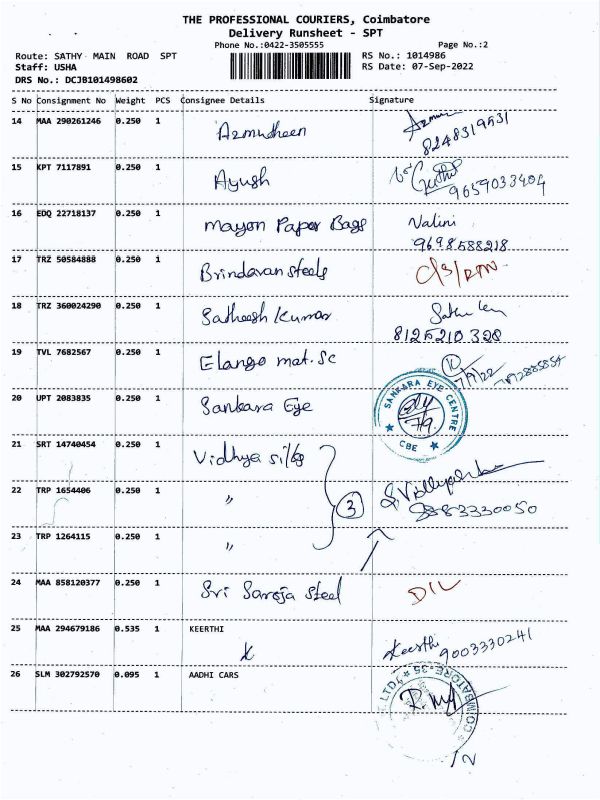 THE PROFESSIONAL COURIERS, Coimbatore
Delivery Runsheet - SPT
Phone No.:0422-3505555 Page No.:2
Route: SATHY MAIN ROAD SPT RS No.: 1014986
Staff: USHA RS Date: 07-Sep-2022
DRS No.: DCJB101498602
S No Consignment No Weight PCS Consignee Details Signature
14 MAA 290261246 0.250 1 Azmudheen
8248319531
15 KPT 7117891 0.250 1 Ayush
9659033404
16 EDQ 22718137 0.250 1 Mayon Paper Bags Nalini
9698588218
17 TRZ 50584888 0.250 1 Brindavan steels C/S/RTN
18 TRZ 360024290 0.250 1 Satheesh Kumar
8125210328
19 TVL 7682567 0.250 1 Elango mat. Sc 10
7/9/22
20 UPT 2083835 0.250 1 Sankara Eye SANKARA EYE CENTRE
7/9
CBE
21 SRT 14740454 0.250 1 Vidhya silks
22 TRP 1654406 0.250 1 " 3
8883330050
23 TRP 1264115 0.250 1 "
24 MAA 858120377 0.250 1 Sri Saroja Steel D/L
25 MAA 294679186 0.535 1 KEERTHI Keerthi
K 9003330241
26 SLM 302792570 0.095 1 AADHI CARS